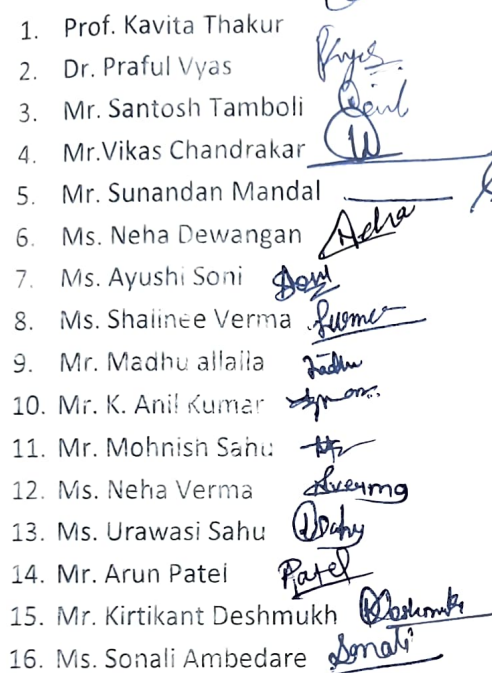 1. Prof. Kavita Thakur
2. Dr. Praful Vyas
3. Mr. Santosh Tamboli
4. Mr.Vikas Chandrakar
5. Mr. Sunandan Mandal
6. Ms. Neha Dewangan
7. Ms. Ayushi Soni
8. Ms. Shalinee Verma
9. Mr. Madhu allaila
10. Mr. K. Anil Kumar
11. Mr. Mohnish Sahu
12. Ms. Neha Verma
13. Ms. Urawasi Sahu
14. Mr. Arun Patel Patel
15. Mr. Kirtikant Deshmukh
16. Ms. Sonali Ambedare Sonali